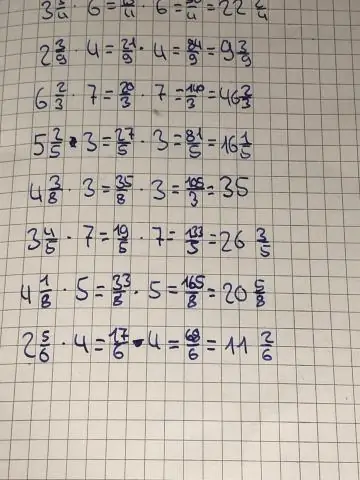 3 3/4 · 6 = 15/4 · 6 = 90/4 = 22 2/4
2 3/9 · 4 = 21/9 · 4 = 84/9 = 9 3/9
6 2/3 · 7 = 20/3 · 7 = 140/3 = 46 2/3
5 2/5 · 3 = 27/5 · 3 = 81/5 = 16 1/5
4 3/8 · 3 = 35/8 · 3 = 105/3 = 35
3 4/5 · 7 = 19/5 · 7 = 133/5 = 26 3/5
4 1/8 · 5 = 33/8 · 5 = 165/8 = 20 5/8
2 5/6 · 4 = 17/6 · 4 = 68/6 = 11 2/6